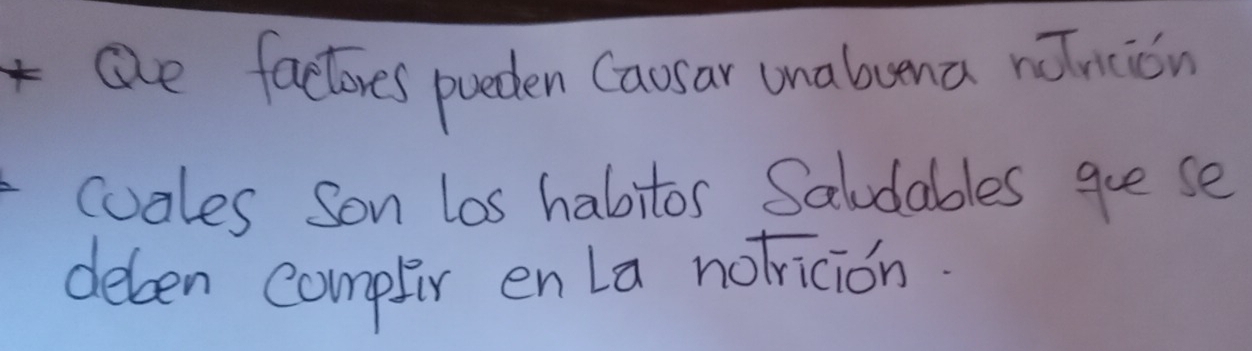 * Que factores pueden Causar una buena nutrición
* Cuales son los habitos Saludables que se
deben cumplir en La nutrición.